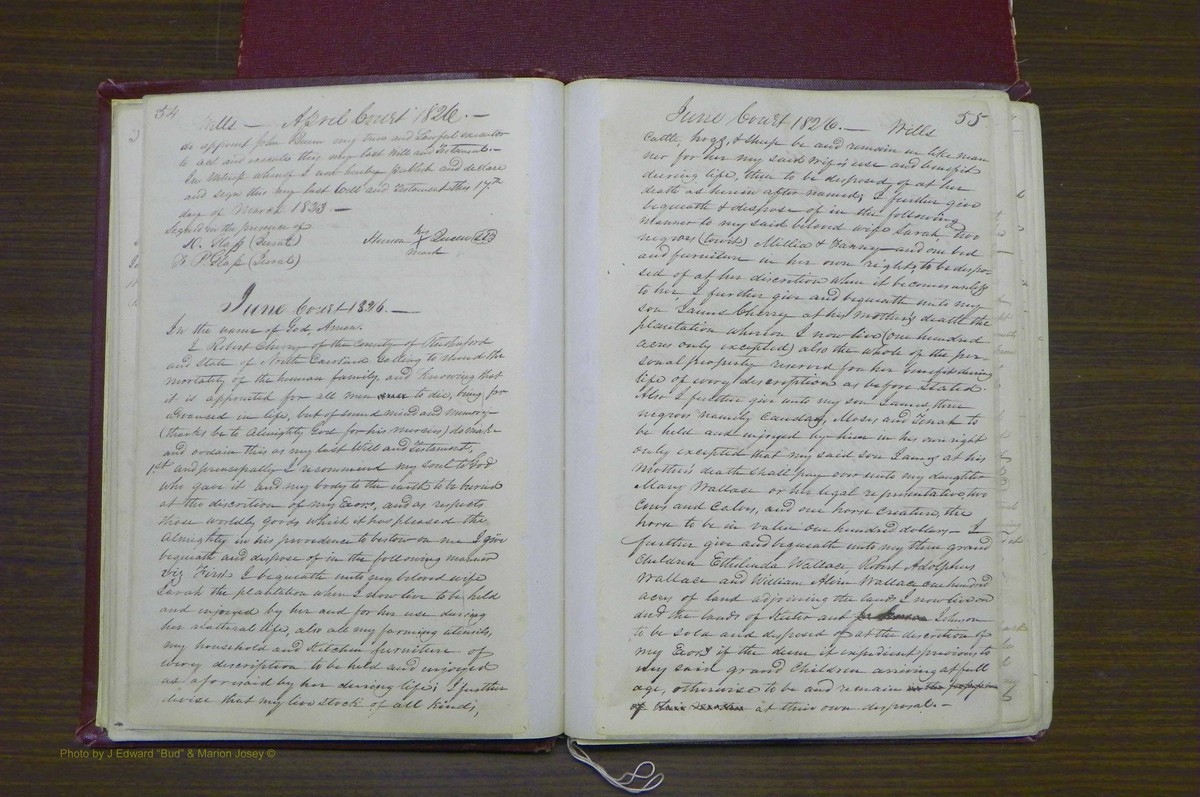 54
Wills — April Court 1826. —
do appoint John my true and Lawful executor
to act and execute this my last will and Testament. —
In witness whereof I now hereby publish and declare
and sign this my last Will and testament this 17th
day of March 1823. —
Signed in the presence of
(Jurat) his
(Jurat) mark
June Court 1826. —
In the name of God, Amen.
I Robert Cherry of the County of Rutherford
and State of North Carolina calling to mind the
mortality of the human family, and knowing that
it is appointed for all men to die, being far
advanced in life, but of sound mind and memory
(thanks be to Almighty God for his mercies) do make
and ordain this as my last Will and Testament,
1st and principally I recommend my soul to God
who gave it and my body to the earth to be buried
at the discretion of my Exors, and as respects
those worldly goods which it has pleased the
Almighty in his providence to bestow on me I give
bequeath and dispose of in the following manner
Viz First I bequeath unto my beloved wife
Sarah the plantation where I now live to be held
and enjoyed by her and for her use during
her natural life, also all my farming utensils,
my household and kitchen furniture of
every description to be held and enjoyed
as aforesaid by her during life; I further
devise that my live stock of all kinds,
June Court 1826. — Wills 55
Cattle, hogs, & sheep be and remain in like man
ner for her my said wife's use and benefit
during life, then to be disposed of at her
death as herein after named; I further give
bequeath & dispose of in the following
manner to my said beloved wife Sarah, two
negroes (towit) Millia & Fanny and one bed
and furniture in her own right, to be dispo
sed of at her discretion when it becomes
to her, I further give and bequeath unto my
son James Cherry at his mother's death the
plantation whereon I now live (one hundred
acres only excepted) also the whole of the per
sonal property reserved for her benefit during
life of every description as before stated
Also I further give unto my son James, three
negroes namely Moses and to
be held and enjoyed by him in his own right
only excepted that my said son James at his
mother's death shall pay over unto my daughter
Mary Wallace or her legal representative, two
Cows and Calves, and one horse Creature, the
horse to be in value one hundred dollars — I
further give and bequeath unto my three grand
Children Ethelinda Wallace, Robert Adolphus
Wallace and William Alvin Wallace, one hundred
acres of land adjoining the lands I now live on
and the lands of and Johnson
to be sold and disposed of at the discretion of
my Exors if they deem it expedient previous to
my said grand Children arriving at full
age, otherwise to be and remain
at their own disposal. —
Photo by J Edward "Bud" & Marion Josey ©